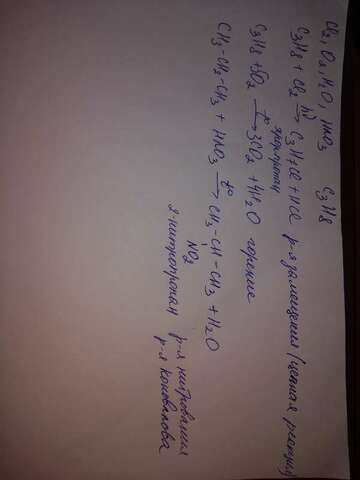 Cl2, O2, H2O, HNO3    C3H8
C3H8 + Cl2 →hν C3H7Cl + HCl р-я замещения (цепная реакция)
хлорпропан
C3H8 + 5O2 →t° 3CO2 + 4H2O горение
CH3-CH2-CH3 + HNO3 →t° CH3-CH-CH3 + H2O
NO2
2-нитропропан р-я нитрования
р-я Коновалова